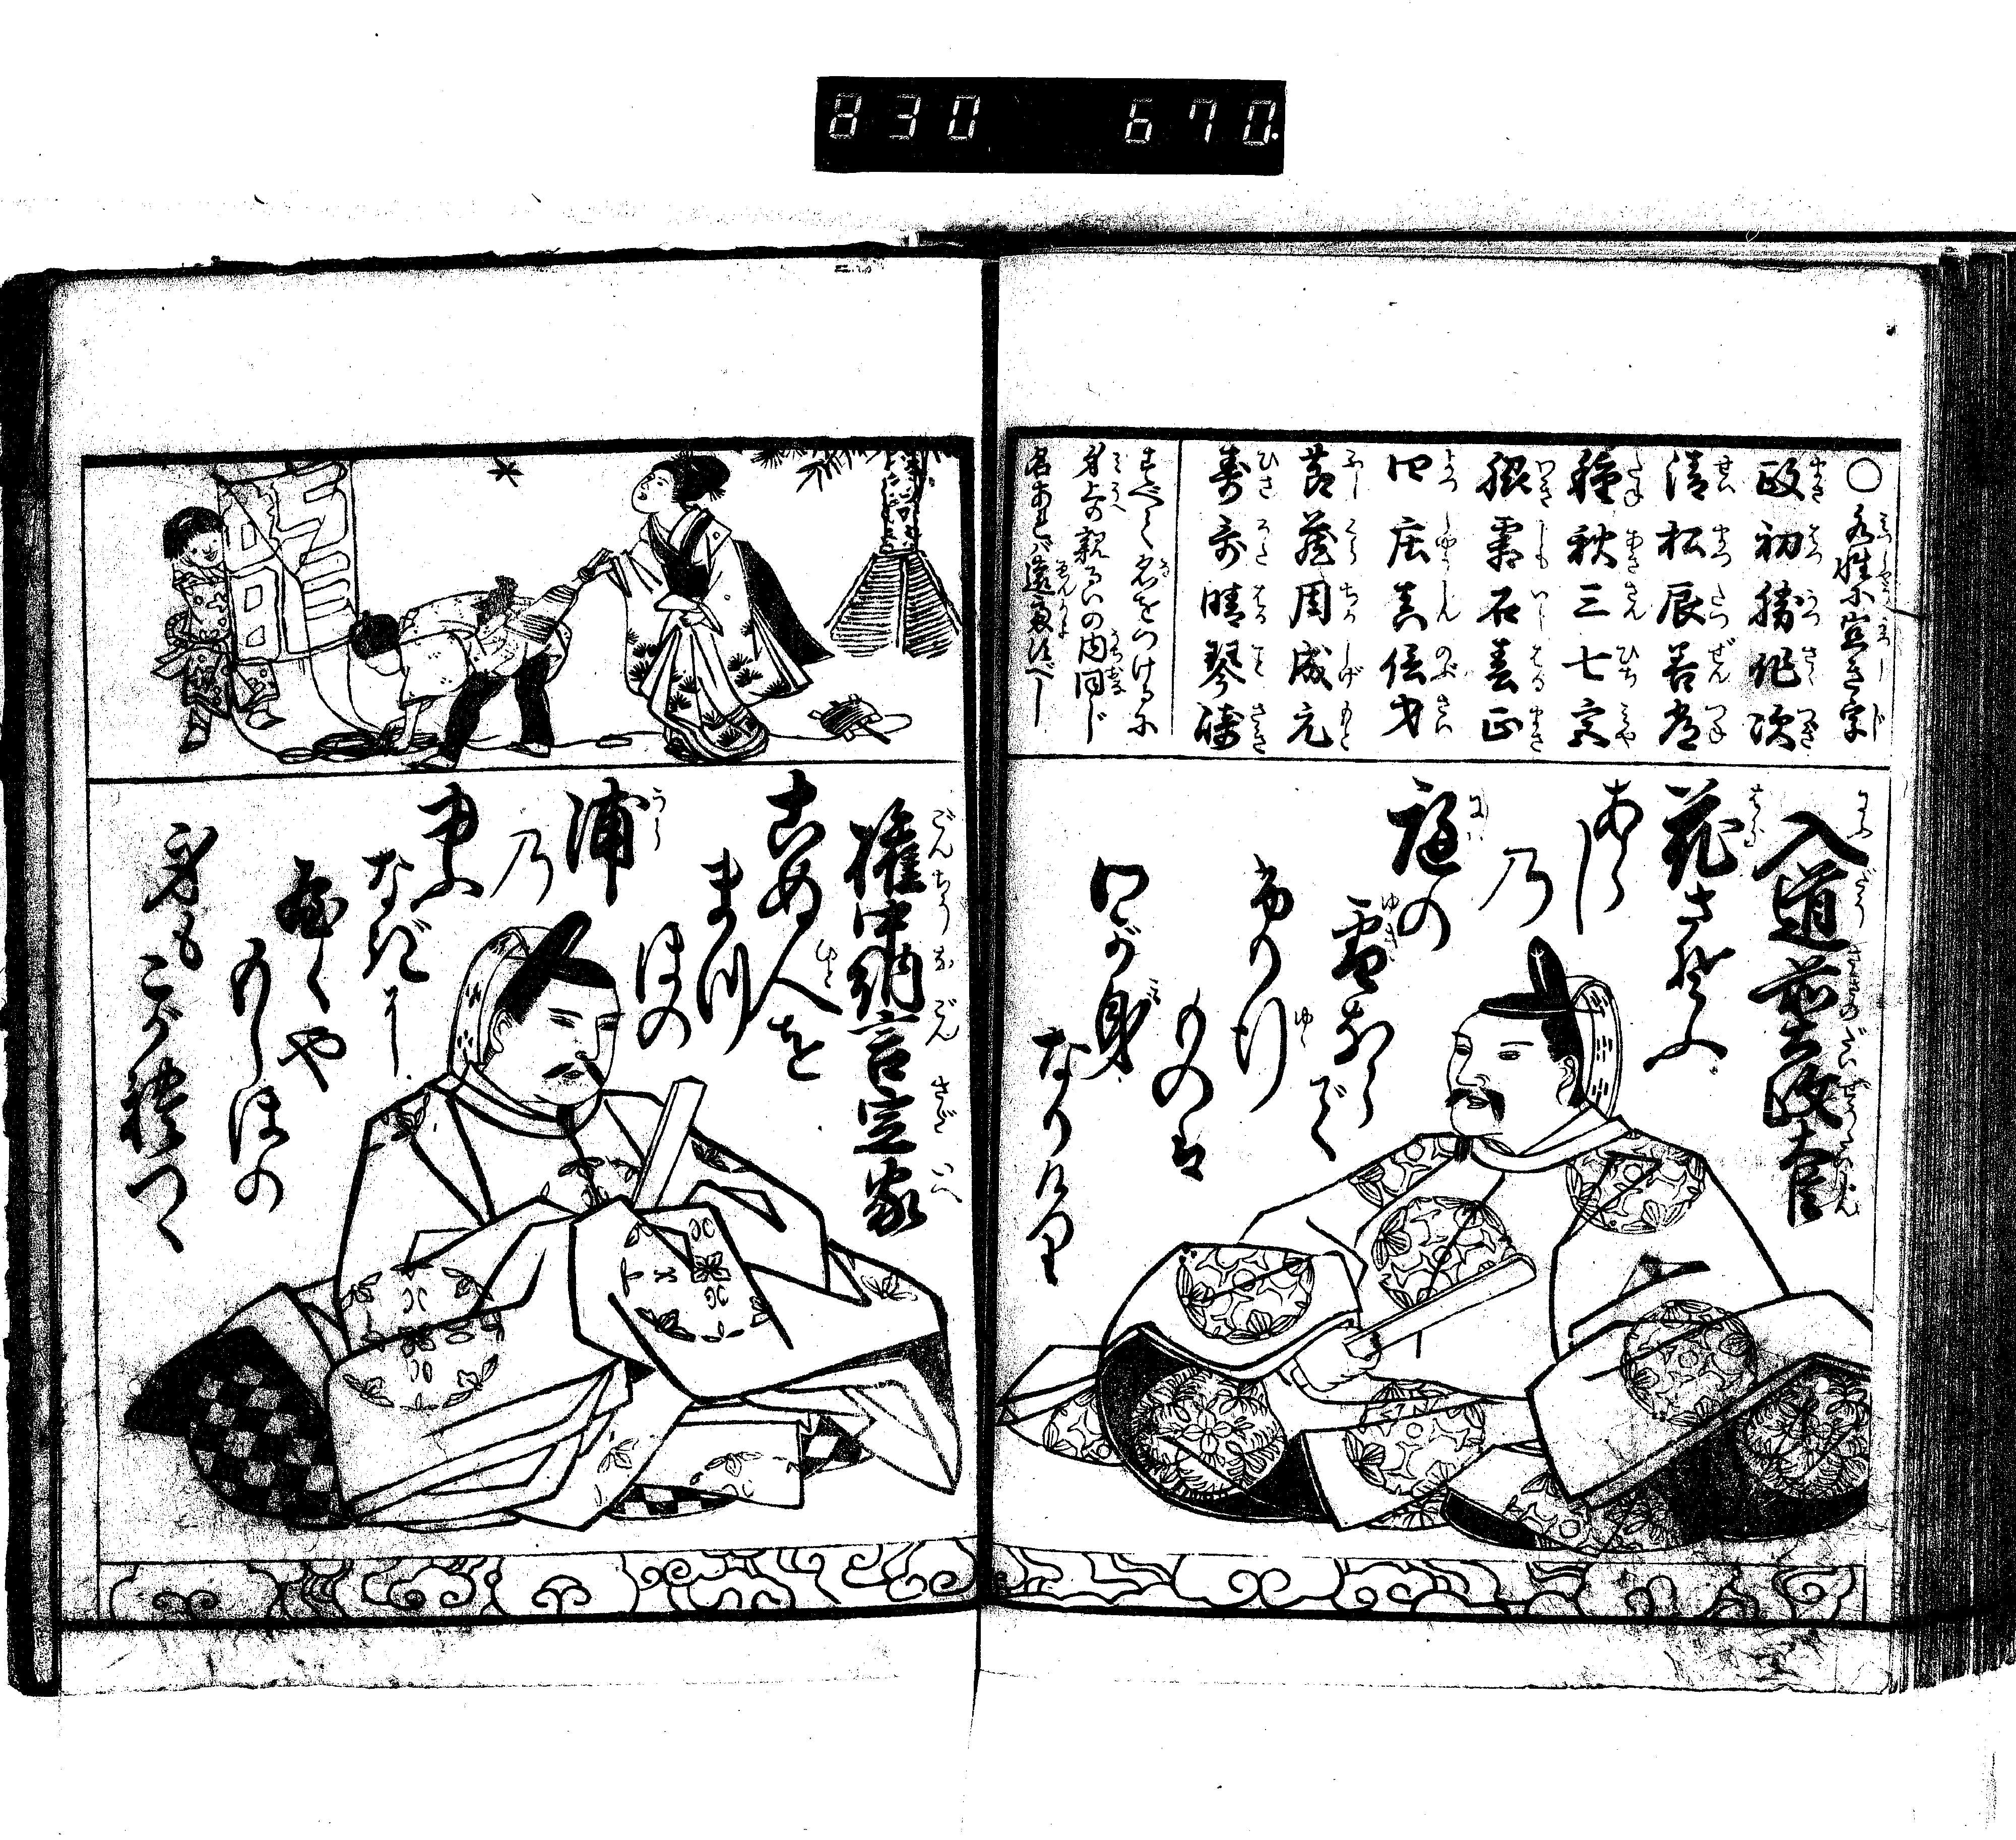 830 670.
○水性に宜き字
政 初 勝 作 次
清 松 辰 善 常
種 秋 三 七 宮
銀 霜 石 春 正
四 庄 真 信 才
節 蔵 周 成 元
寿 哥 晴 琴 崎
すべて名をつけるに
身上の親るいの内同じ
名あらバ遠慮すべし
入道前太政大臣
花さそふ
あらし
乃
庭の
雪ならで
ふり行
ものは
わが身
なりけり
権中納言定家
こぬ人を
まつ
ほの
浦
乃
夕
なぎに
やくや
もしほの
身も
こがれつゝ